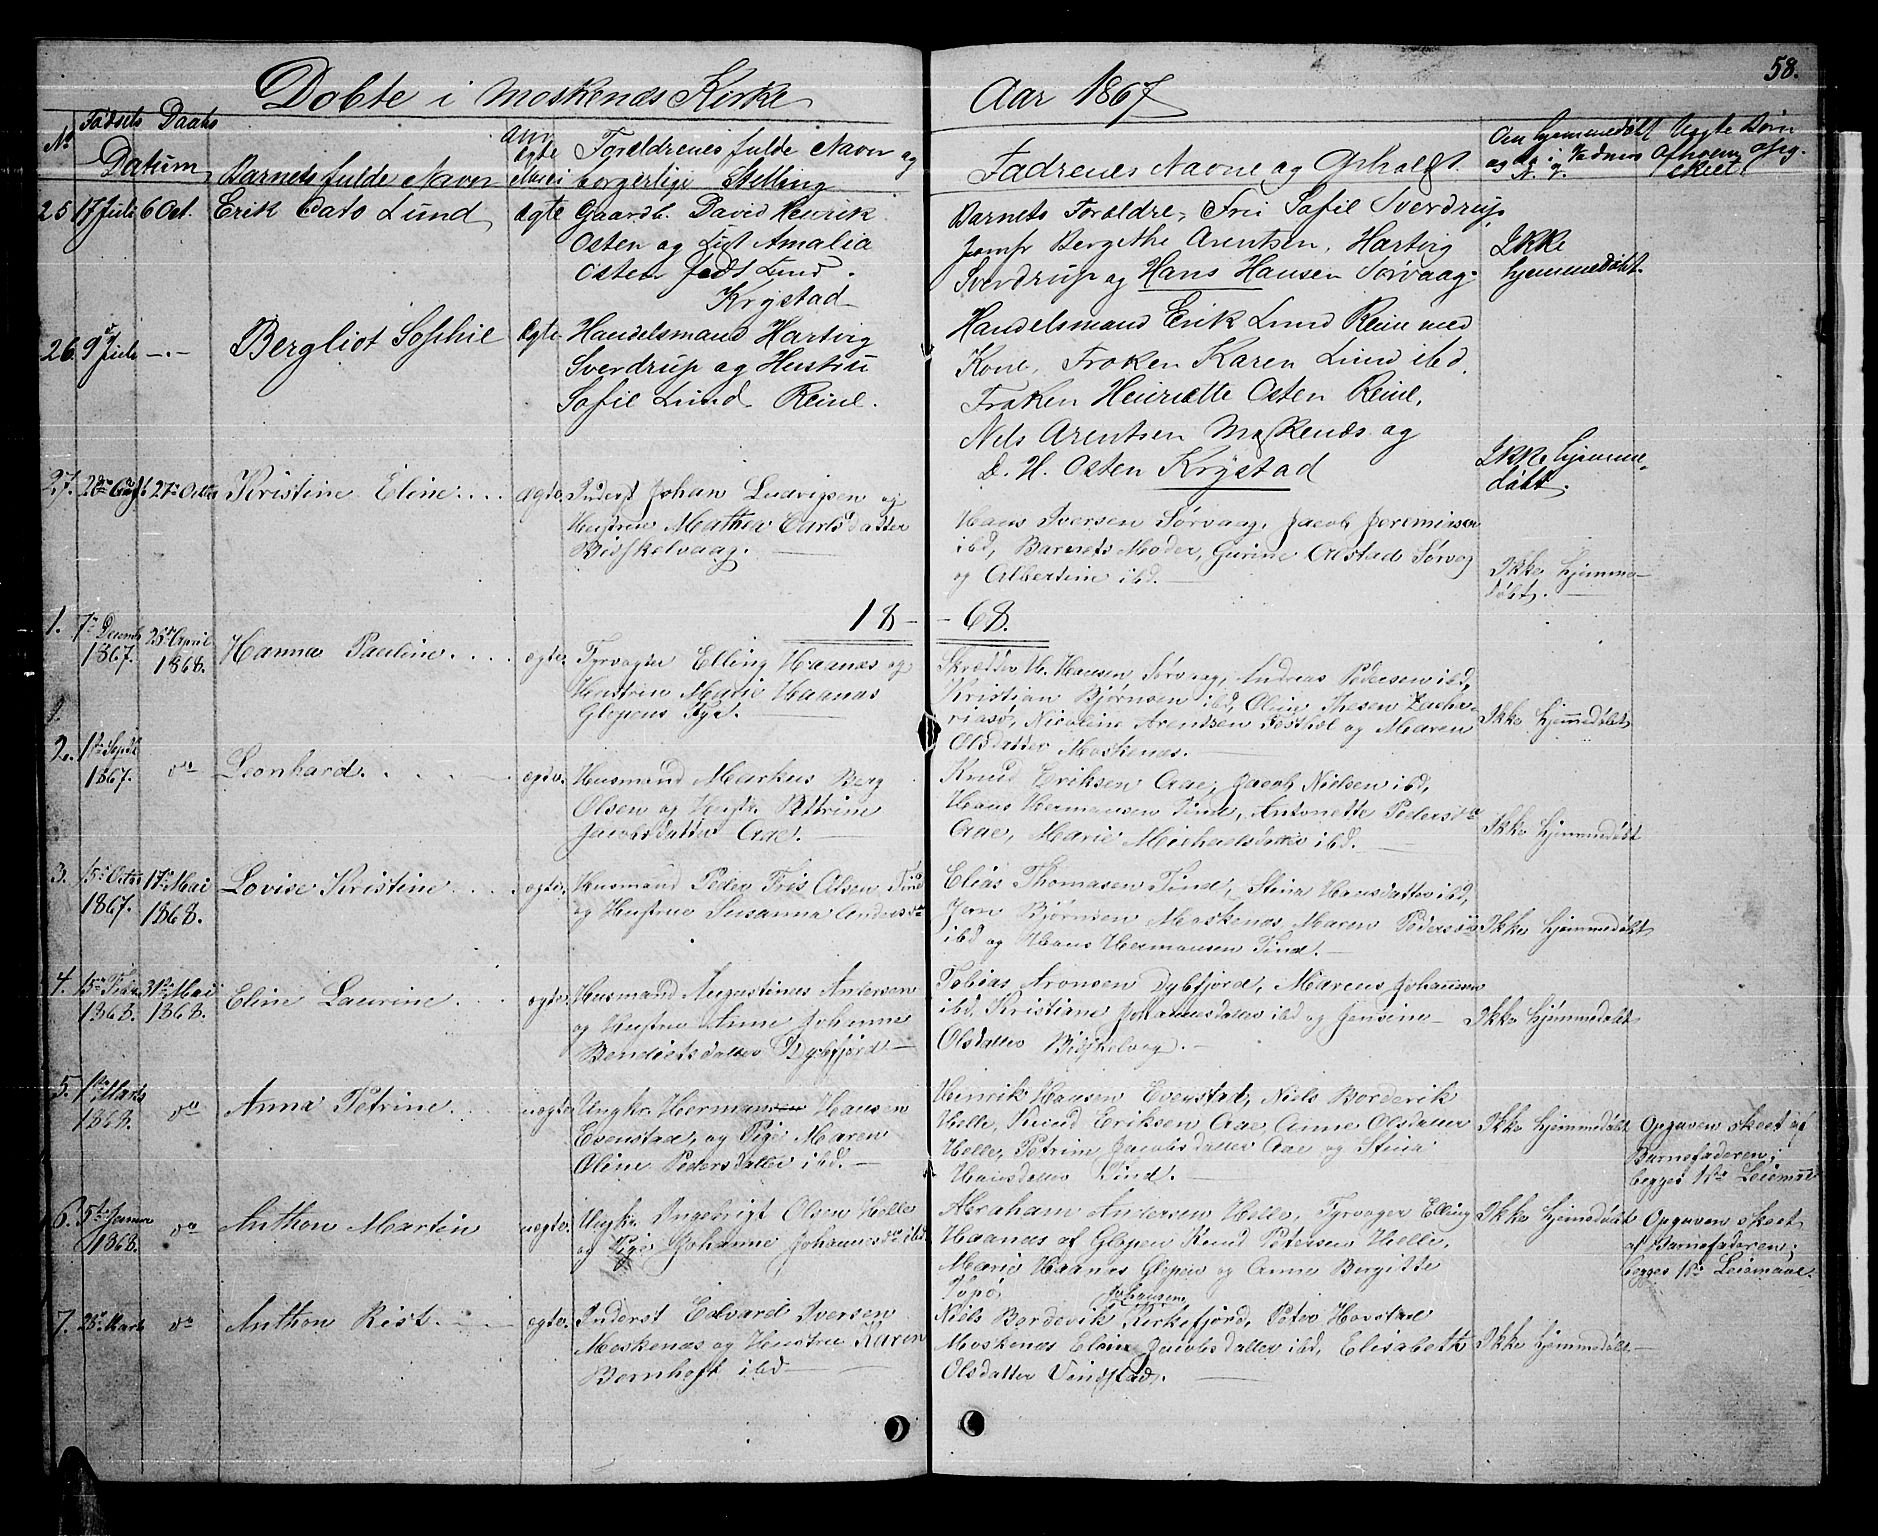 58.
Döbte i Moskenæs Kirke Aar 1867
No Födsels Daabs
Datum Barnets fulde Navn
Om ægte eller ei
Foreldrenes fulde Navn og
borgerlige Stilling
Fadrenes Navne og Ophold
Om hjemmedøbt
Uægte Børn
25 17 Juli 6 Oct. Erik Cato Lund ægte Gaardb. David Henrik
Osten og Amalia
Osten født Lund.
Krystad
Barnets Forældre, Fru Sofie Sverdrup,
Jomfr Bergithe Arentsen, Hartvig
Sverdrup og Hans Hansen Sørvaag.
Ikke
hjemmedøbt.
26. 9 Juli -.- Bergliot Sophie ægte Handelsmand Hartvig
Sverdrup og Hustru
Sofie Lund Reine.
Handelsmand Erik Lund Reine med
Kone, Frøken Karen Lund ibd.
Frøken Henriette Osten Reine,
Nels Arentsen Moskenæs og
D. H. Osten Krystad
Ikke hjemme-
døbt.
27. 28de Augst 27de Octbr Kristine Eline.... ægte. Inderst Johan Ludvigsen og
Hustrue Mathea Carlsdatter
Bidskelvaag.
Hans Iversen Sørvaag, Jacob Joremiasen
ibd, Barnets Moder, Gurine Olstad Sørvog
og Albertine ibd.
Ikke hjemme-
døbt.
18- -68.
1. 7de Decemb 1867. 25de April 1868. Hanna Pauline.... ægte. Fyrvogter Elling Haanæs og
Hustrue Marie Haanæs
Glopens Fyr.
Skrædder H. Hansen Sørvaag, Andreas Pedersen ibd,
Kristian Bjørnsen ibd, Oline Zacha-
riasø, Nicoline Arentsen og Maren
Olsdatter Moskenæs.
Ikke hjemmedøbt
2. 1ste Septbr 1867. do Leonhard.... ægte. Husmand Markus Berg
Olsen og Hustr. Pettrine
Jacobsdatter Aae.
Knud Eriksen Aae, Jacob Nielsen ibd,
Hans Hermansen Tind, Antonette Pedersda
Aae, Marie Michaelsdatter ibd.
Ikke hjemmedøbt
3. 15de Octbr 1867. 17de Mai 1868. Lovise Kristine.... ægte. Husmand Peder Fris Olsen Tind
og Hustrue Susanna Andersda
Elias Thomasen Tind, Stina Hansdatter ibd,
Jon Bjørnsen Moskenæs Maren Pedersda
ibd og Hans Hermansen Tind.
Ikke hjemmedøbt
4. 15de Febr 1868. 31te Mai 1868. Eline Laurine.... ægte. Husmand Augustinus Andersen
og Hustrue Anne Johanne
Bendictsdatter Dybfjord
Tobias Aronsen Dybfjord, Marcus Johannesen
ibd, Kristiane Johannesdatter ibd og Jensine
Olsdatter Bidskelvog.
Ikke hjemmedøbt
5. 1ste Marts 1868. do Anna Petrine.... uægte Ungkr. Hermansen Hansen
Evenstad, og Pige Maren
Oline Pedersdatter ibd.
Henrik Hansen Evenstad, Niels Borderik
Helle, Knud Eriksen Aae Anne Olsdatter
Helle, Petrine Jacobsdatter Aae og Stina
Hansdatter Tind.
Ikke hjemmedøbt
Opgaven skeet af
Barnefaderen;
begges 1ste Leiemaal
6. 5te Januar 1868. do Anthon Martin uægte. Ungkr. Ingebrigt Olsen Helle
og Pige Johanne Johannesda ibd.
Abraham Andersen Helle, Fyrvogter Elling
Haanæs af Glopen Knud Petersen Helle,
Marie Haanæs Glopen og Anne Bergitte
Topø,
Ikke hjemmedøbt
Opgaven skeet
af Barnefaderen;
begges 1ste Leiemaal.
7. 25de Marts do Anthon Rist.... ægte. Inderst Edvard Iversen
Moskenæs og Hustrue Karen
Bernhoft ibd
Johansen
Niels Bordevik Kirkefjord, Peter Hovstad
Moskenæs Eline Jacobsdatter ibd, Elisabeth
Olsdatter Vindstad.
Ikke hjemmedøbt